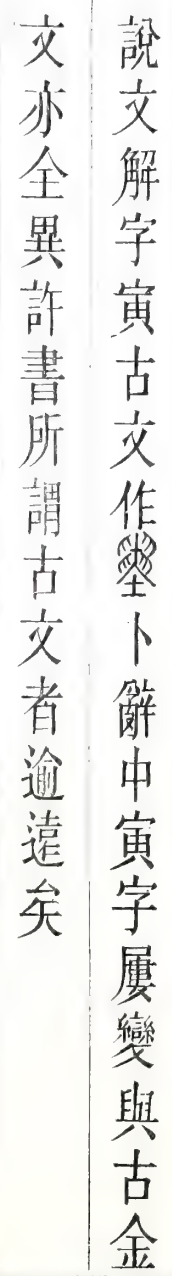 說文解字寅古文作𡒄卜辭中寅字屢變與古金
文亦全異許書所謂古文者逾遠矣